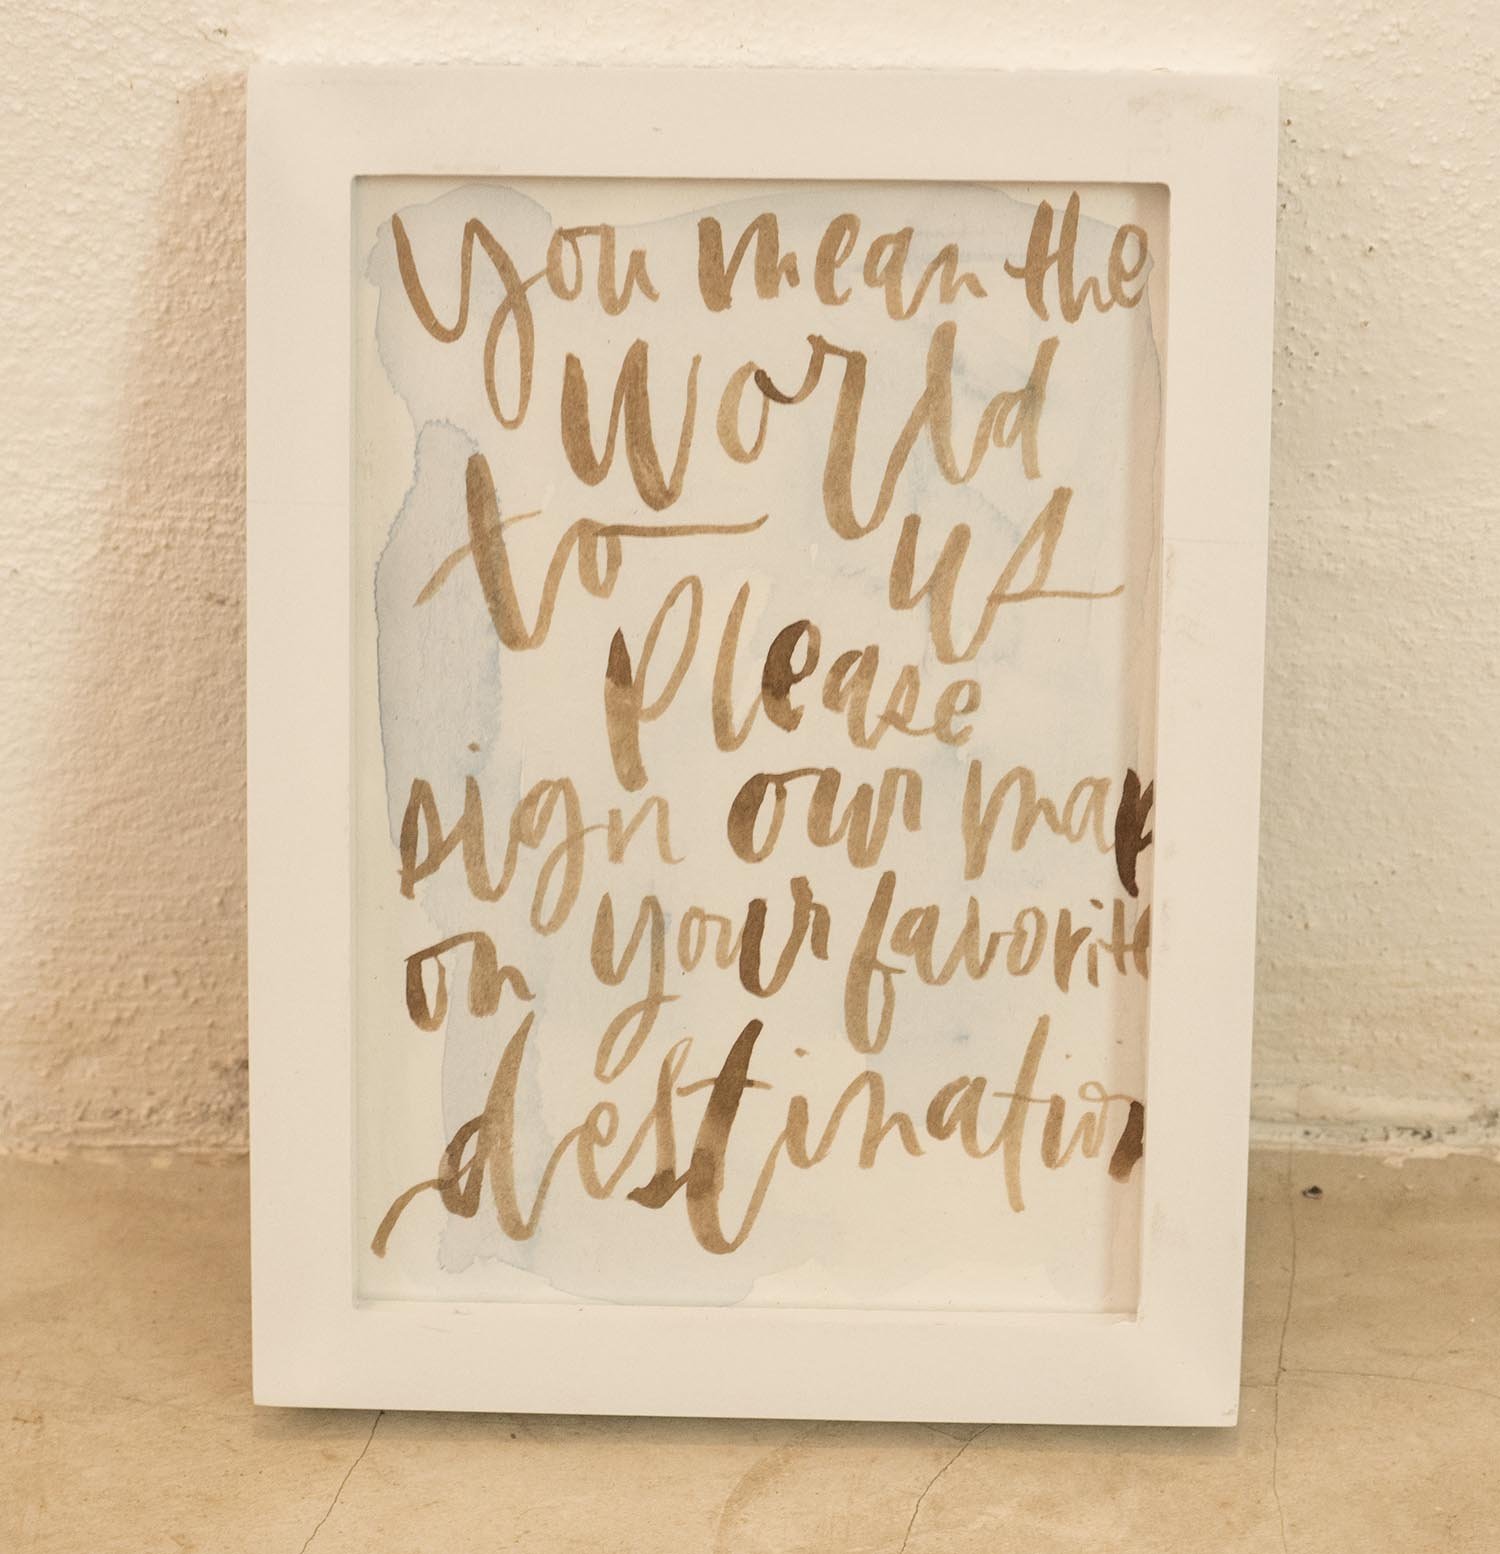 you mean the
world
to us
please
sign our map
on your favorite
destination